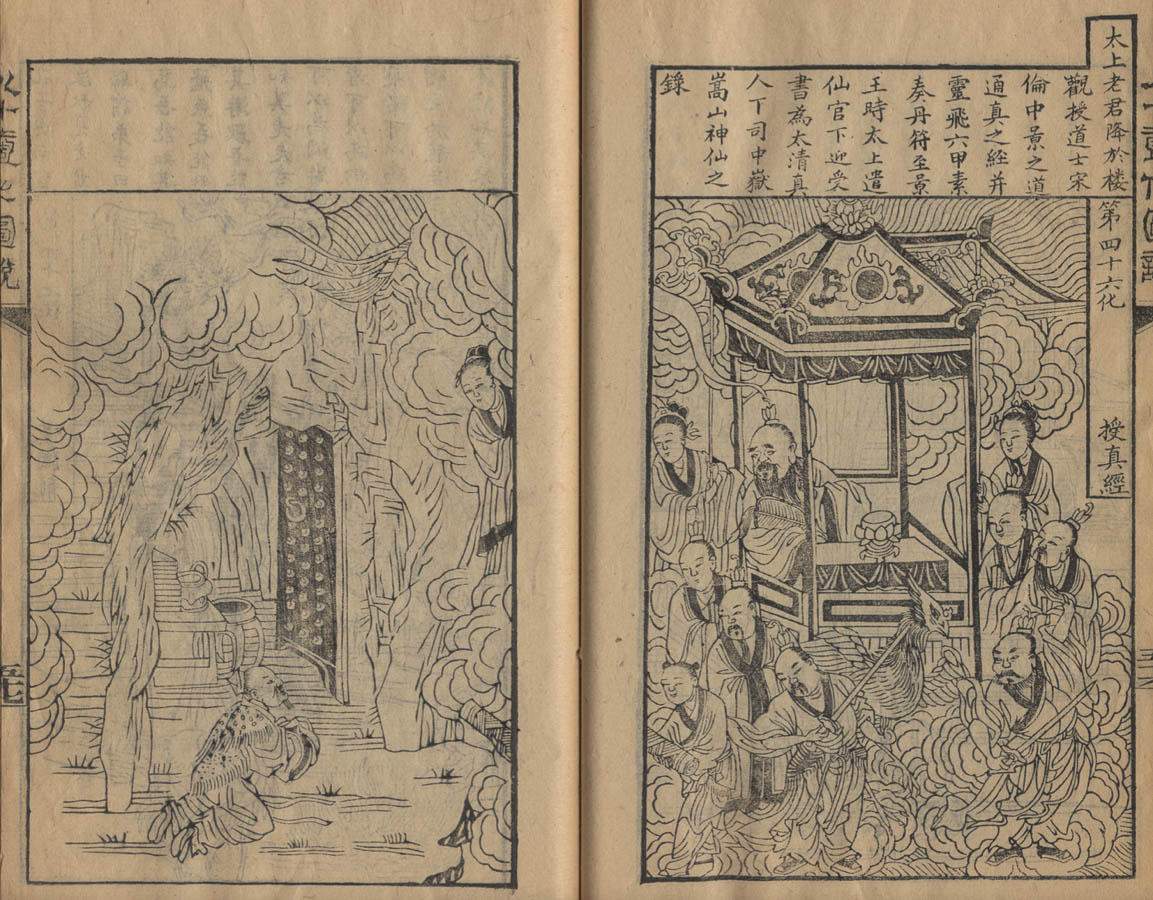 太上老君降於楼
觀授道士宋
倫中景之道
通真之經并
靈飛六甲素
奏丹符至景
王時太上遣
仙官下迎受
書為太清真
人下司中嶽
嵩山神仙之
錄
第四十六化
授真經
八十一化圖說